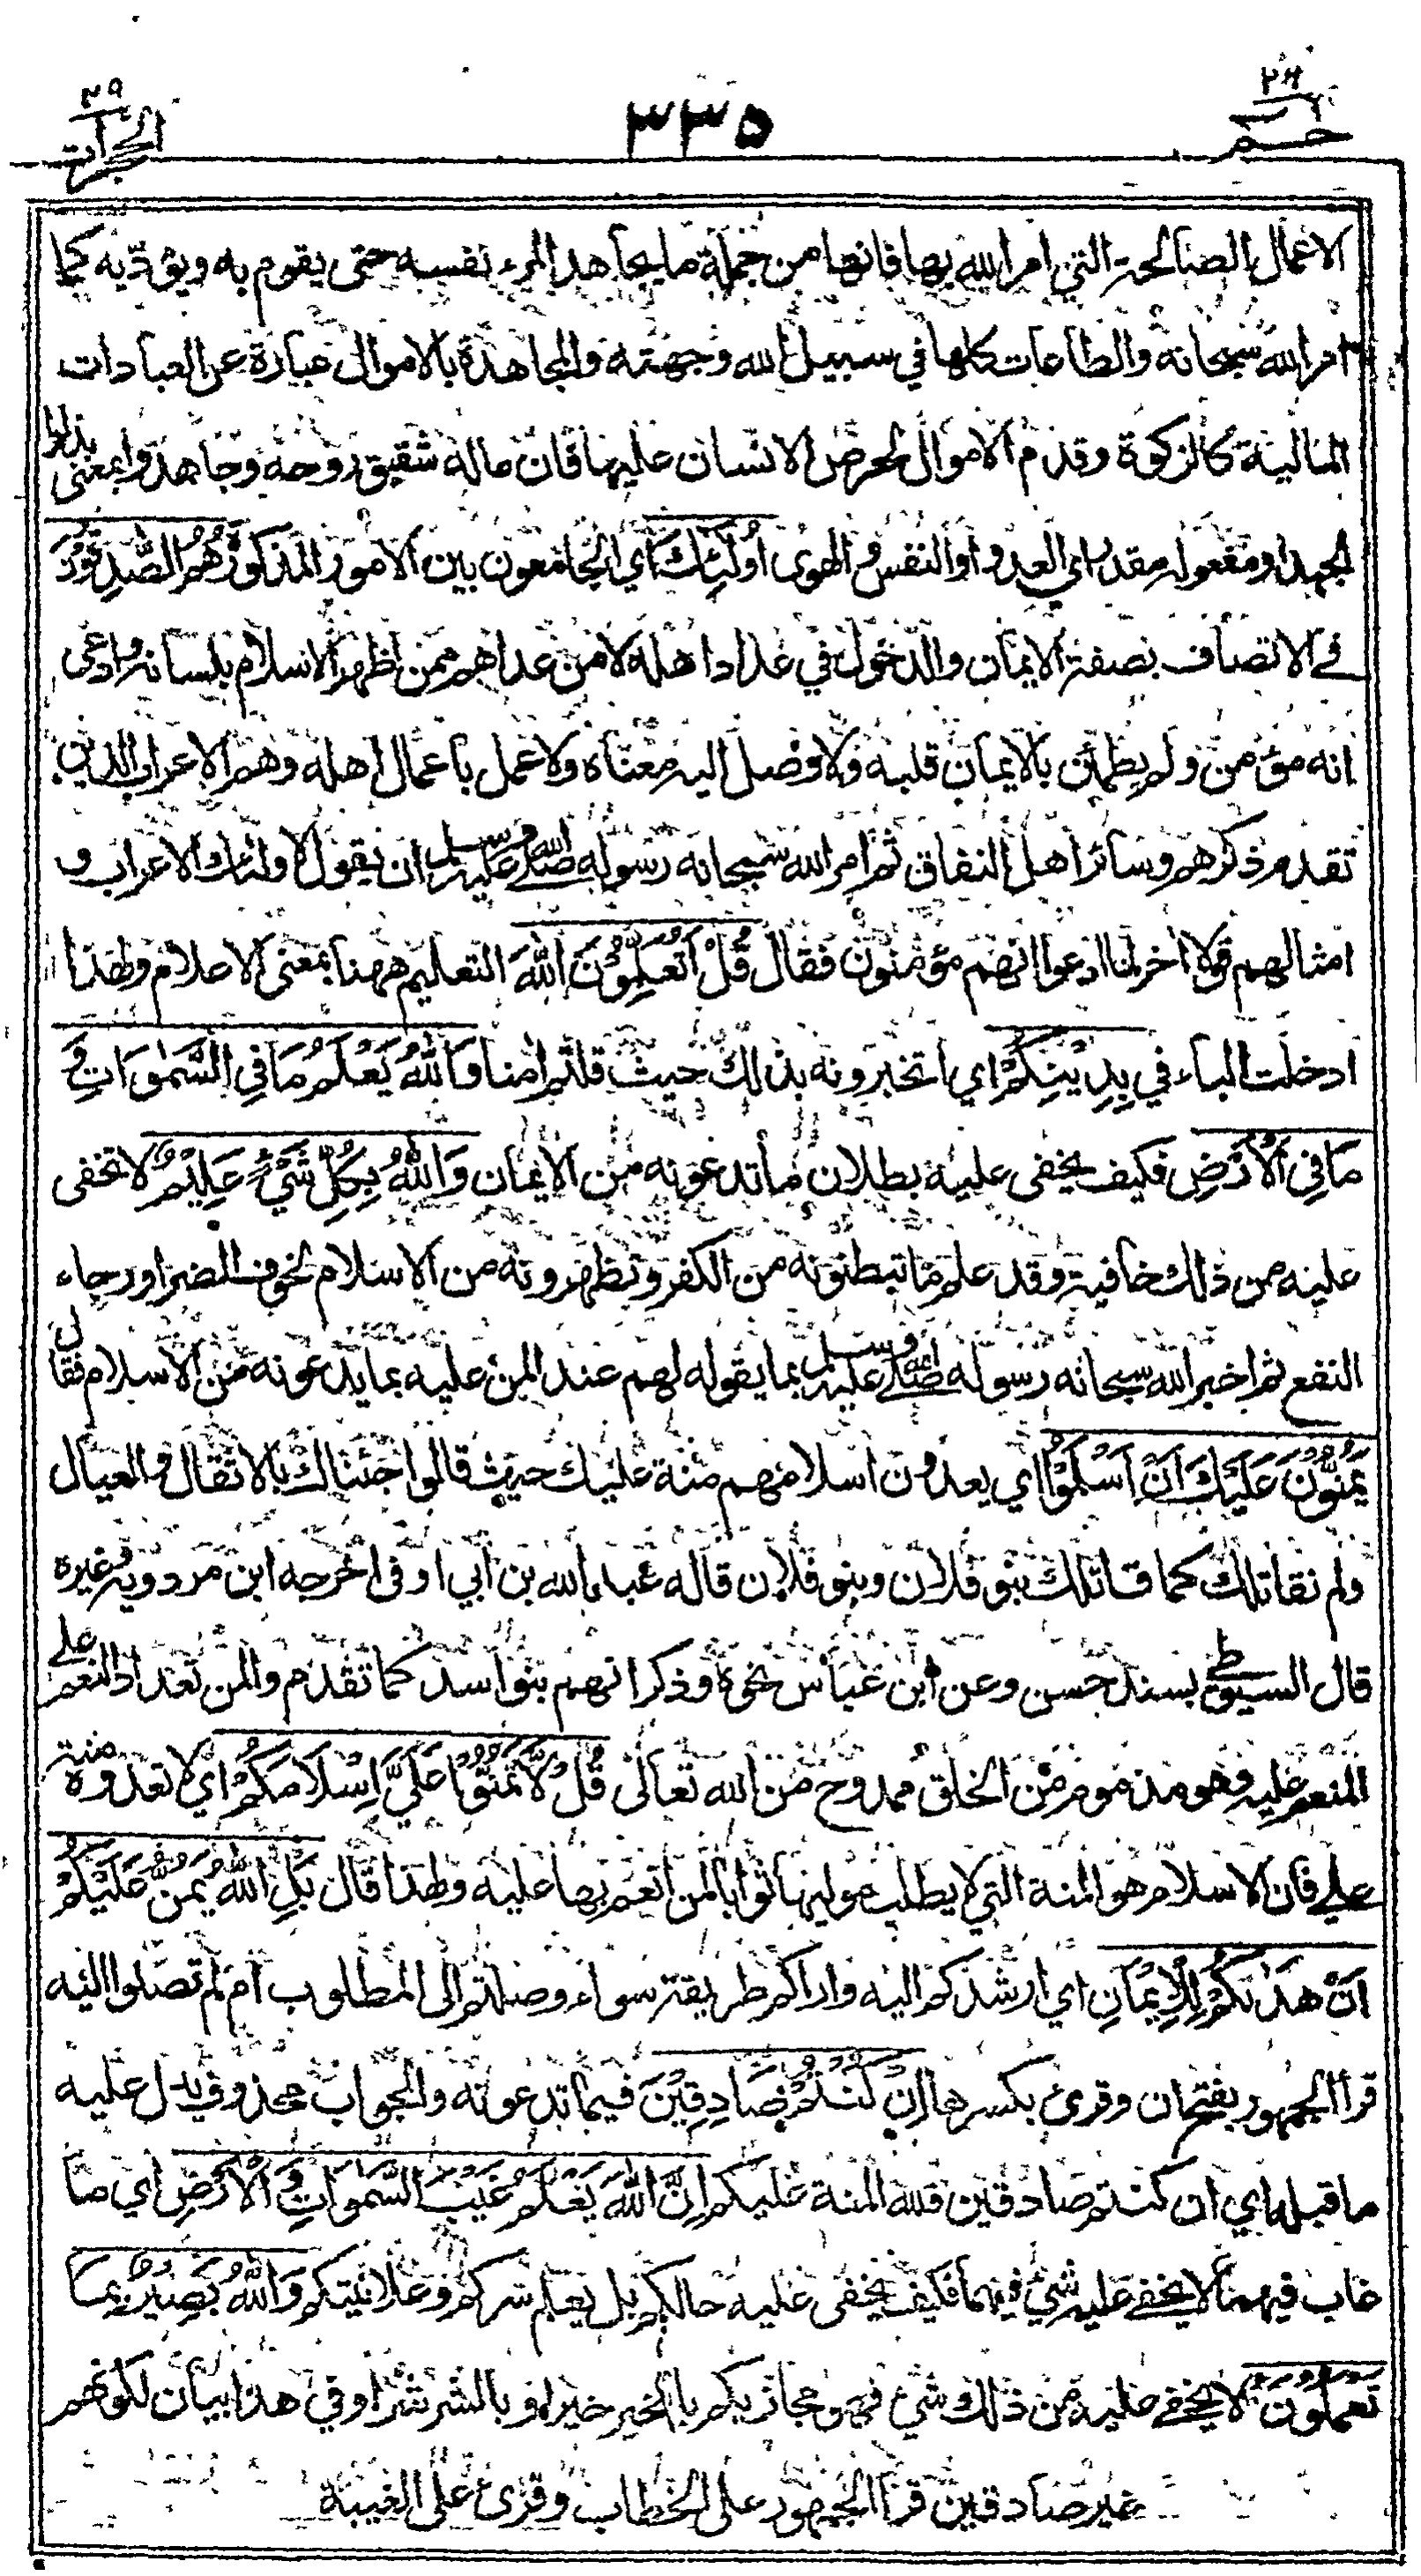 حم ٢٦
٣٣٥
الحجرات ٤٩
الاعمال الصالحة التي امر الله بها فانها من جملة ما يجاهد المرء نفسه حتى يقوم به ويؤدّيه كما
امر الله سبحانه والطاعات كلها في سبيل الله وجهته والمجاهدة بالاموال عبارة عن العبادات
المالية كالزكوة وقدم الاموال لحرص الانسان عليها فان ماله شقيق روحه وجاهدوا بمعنى بذلوا
الجهد او مفعوله مقدر اي العدو او النفس والهوى أُولَٰئِكَ اي الجامعون بين الامور المذكورة هُمُ الصَّادِقُونَ
في الاتصاف بصفة الايمان والدخول في عداد اهله لا من عداهم ممن اظهر الاسلام بلسانه وادعى
انه مؤمن ولم يطمئن بالايمان قلبه ولا وصل اليه معناه ولا عمل باعمال اهله وهم الاعراب الذين
تقدم ذكرهم وسائر اهل النفاق ثم امر الله سبحانه رسوله صلى الله عليه وسلم ان يقول لاولئك الاعراب و
امثالهم قولا اخر لما ادعوا انهم مؤمنون فقال قُلْ أَتُعَلِّمُونَ اللَّهَ التعليم ههنا بمعنى الاعلام ولهذا
ادخلت الباء في بِدِيْنِكُمْ اي اتخبرونه بذلك حيث قلتم امنا وَاللَّهُ يَعْلَمُ مَا فِي السَّمٰوَاتِ وَ
مَا فِي الْأَرْضِ فكيف يخفى عليه بطلان ما تدعونه من الايمان وَاللَّهُ بِكُلِّ شَيْءٍ عَلِيْمٌ لا تخفى
عليه من ذلك خافية وقد علم ما تبطنونه من الكفر وتظهرونه من الاسلام لخوف الضر او رجاء
النفع ثم اخبر الله سبحانه رسوله صلى الله عليه وسلم بما يقوله لهم عند المن عليه بما يدعونه من الاسلام فقال
يَمُنُّوْنَ عَلَيْكَ اَنْ اَسْلَمُوْا اي يعدون اسلامهم منة عليك حيث قالوا جئناك بالاثقال والعيال
ولم نقاتلك كما قاتلك بنو فلان وبنو فلان قاله عبد الله بن ابي اوفى اخرجه ابن مردويه وغيره
قال السيوطي بسند حسن وعن ابن عباس نحوه وذكر انهم بنو اسد كما تقدم والمن تعداد النعم على
المنعم عليه وهو مذموم من الخلق ممدوح من الله تعالى قُلْ لَّا تَمُنُّوْا عَلَيَّ اِسْلَامَكُمْ اي لا تعدوه منة
علي فان الاسلام هو المنة التي لا يطلب موليها ثوابا لمن انعم بها عليه ولهذا قال بَلِ اللَّهُ يَمُنُّ عَلَيْكُمْ
اَنْ هَدٰىكُمْ لِلْاِيْمَانِ اي ارشدكم اليه واراكم طريقته سواء وصلتم الى المطلوب ام لم تصلوا اليه
قرأ الجمهور بفتح ان وقرئ بكسرها اِنْ كُنْتُمْ صَادِقِيْنَ فيما تدعونه والجواب محذوف يدل عليه
ما قبله اي ان كنتم صادقين فلله المنة عليكم اِنَّ اللَّهَ يَعْلَمُ غَيْبَ السَّمٰوَاتِ وَالْاَرْضِ اي ما
غاب فيهما لا يخفى عليه شيء فيهما فكيف يخفى عليه حالكم بل يعلم سركم وعلانيتكم وَاللَّهُ بَصِيْرٌ بِمَا
تَعْمَلُوْنَ لا يخفى عليه من ذلك شيء فهو مجازيكم بالخير خيرا وبالشر شرا وفي هذا بيان لكونهم
غير صادقين قرأ الجمهور على الخطاب وقرئ على الغيبة